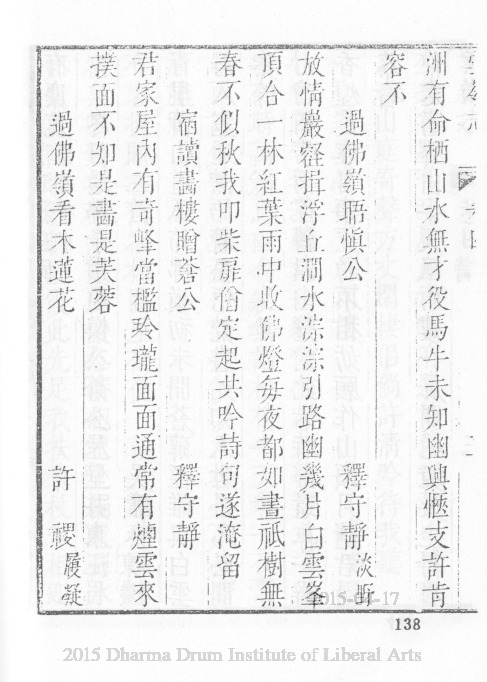 洲有侖栖山水無才役馬牛未知幽興愜支許肯
容不
過佛嶺晤慎公 釋守靜 淡斷
放情巖壑揖浮丘澗水淙淙引路幽幾片白雲峯
頂合一林紅葉雨中收佛燈每夜都如晝祇樹無
春不似秋我叩柴扉僧定起共吟詩句遂淹留
宿讀書樓贈蒼公 釋守靜
君家屋內有奇峰當檻玲瓏面面通常有煙雲來
撲面不知是畵是芙蓉
過佛嶺看木蓮花 許 禝 履凝
138
2015-04-17
2015 Dharma Drum Institute of Liberal Arts